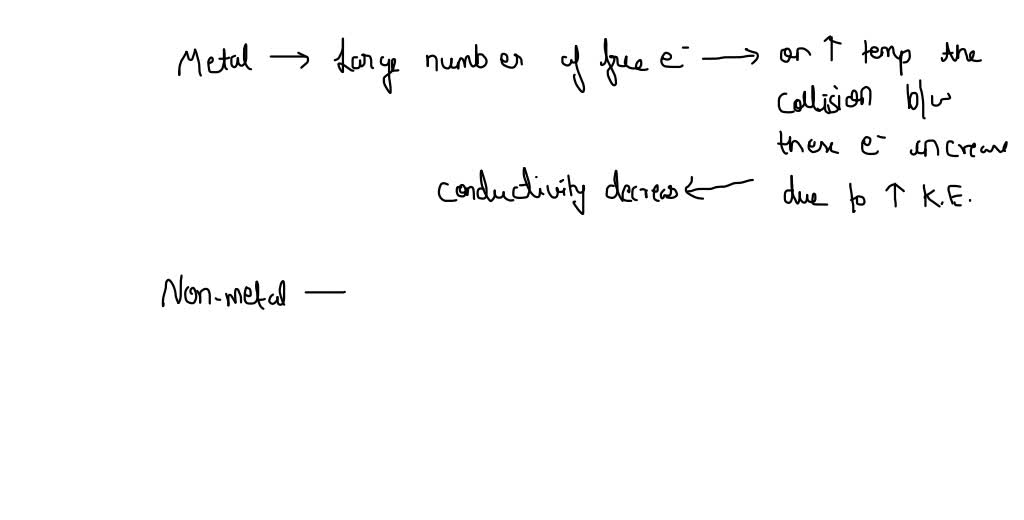 Metal → Large number of free e⁻ → on ↑ temp the
collision b/w
these e⁻ increase
due to ↑ K.E.
conductivity decreas ←
Non-metal —